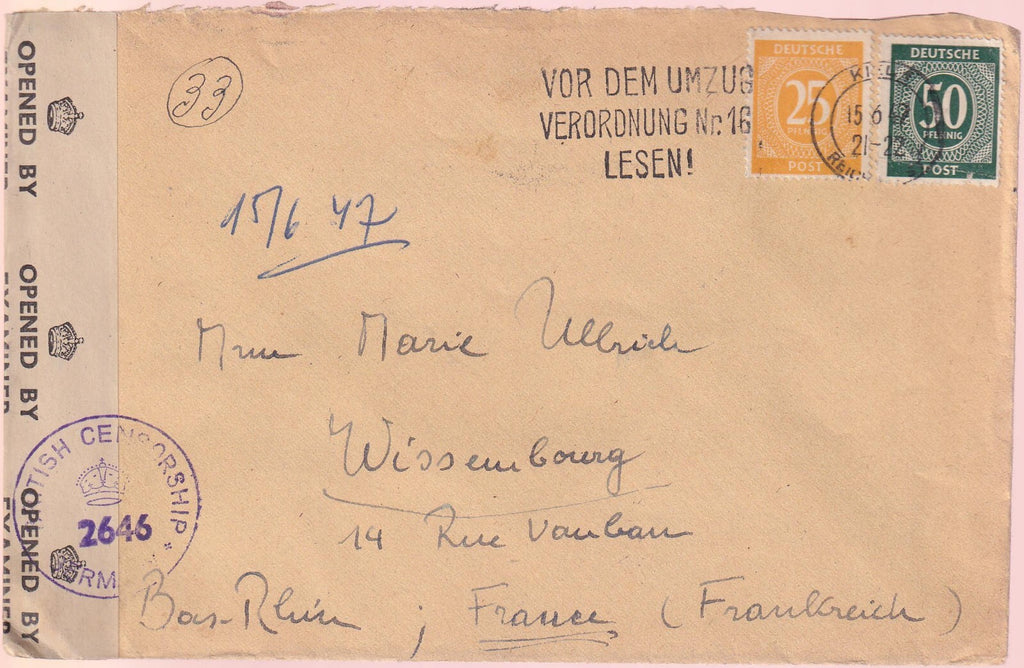 OPENED BY
EXAMINER
OPENED BY
EXAMINER
OPENED BY
EXAMINER
33
VOR DEM UMZUG
VERORDNUNG Nr. 16
LESEN!
DEUTSCHE
25
PFENNIG
POST
DEUTSCHE
50
PFENNIG
POST
15.6
21-2
15/6 47
Mme Marie Ullrich
Wissembourg
14 Rue Vauban
Bas-Rhin ; France (Frankreich)
BRITISH CENSORSHIP
2646